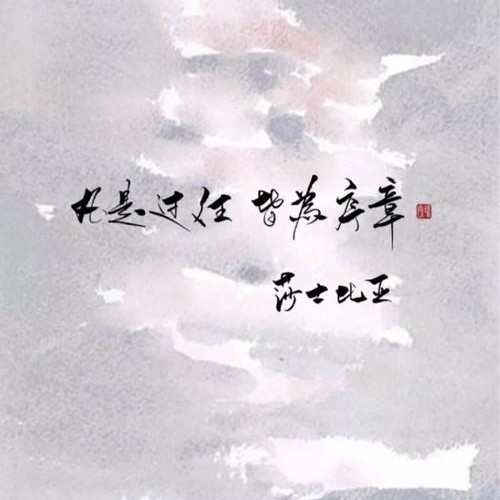 凡是过往 皆为序章
莎士比亚